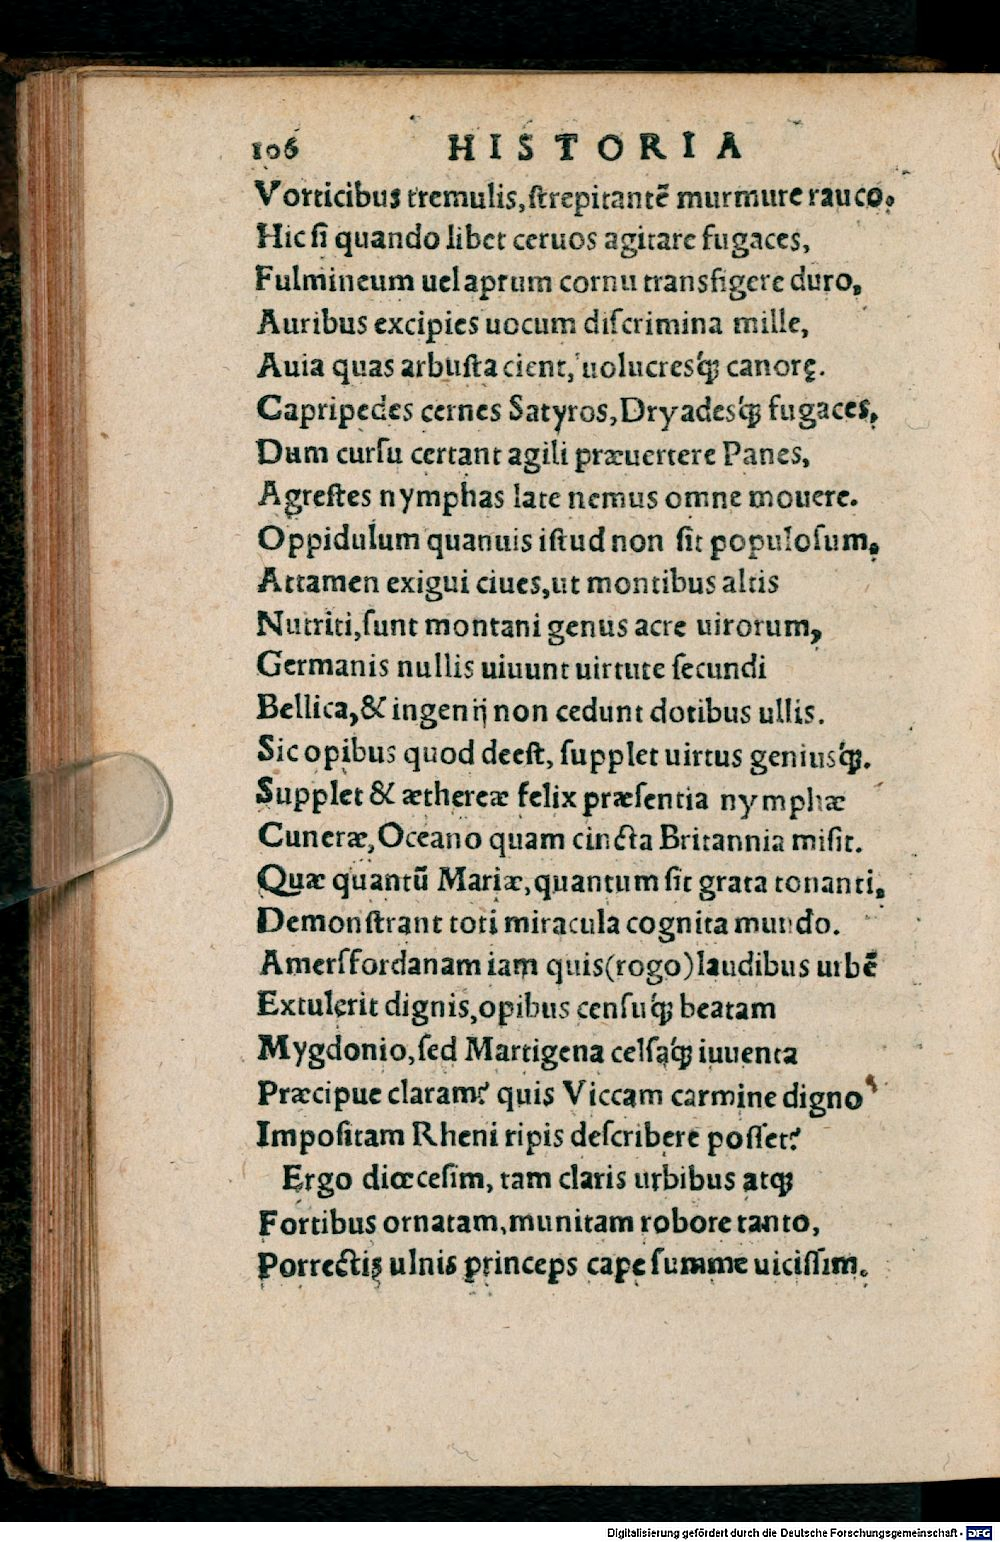 106 HISTORIA
Vorticibus tremulis, ſtrepitantē murmure rauco.
Hic ſi quando libet ceruos agitare fugaces,
Fulmineum uel aptum cornu transfigere duro,
Auribus excipies uocum diſcrimina mille,
Auia quas arbuſta cient, uolucresq́ꝫ canorę.
Capripedes cernes Satyros, Dryadesq́ꝫ fugaces,
Dum curſu certant agili præuertere Panes,
Agreſtes nymphas late nemus omne mouere.
Oppidulum quanuis iſtud non ſit populoſum,
Attamen exigui ciues, ut montibus altis
Nutriti, ſunt montani genus acre uirorum,
Germanis nullis uiuunt uirtute ſecundi
Bellica, & ingenij non cedunt dotibus ullis.
Sic opibus quod deeſt, ſupplet uirtus geniusq́ꝫ.
Supplet & æthereæ felix præſentia nymphæ
Cuneræ, Oceano quam cincta Britannia miſit.
Quæ quantū Mariæ, quantum ſit grata tonanti,
Demonſtrant toti miracula cognita mundo.
Amerſfordanam iam quis (rogo) laudibus urbē
Extulerit dignis, opibus cenſuq́ꝫ beatam
Mygdonio, ſed Martigena celſaq́ꝫ iuuenta
Præcipue claram? quis Viccam carmine digno
Impoſitam Rheni ripis deſcribere poſſet?
Ergo diœceſim, tam claris urbibus atqꝫ
Fortibus ornatam, munitam robore tanto,
Porrectis ulnis princeps cape ſumme uiciſſim.
Digitalisierung gefördert durch die Deutsche Forschungsgemeinschaft - DFG